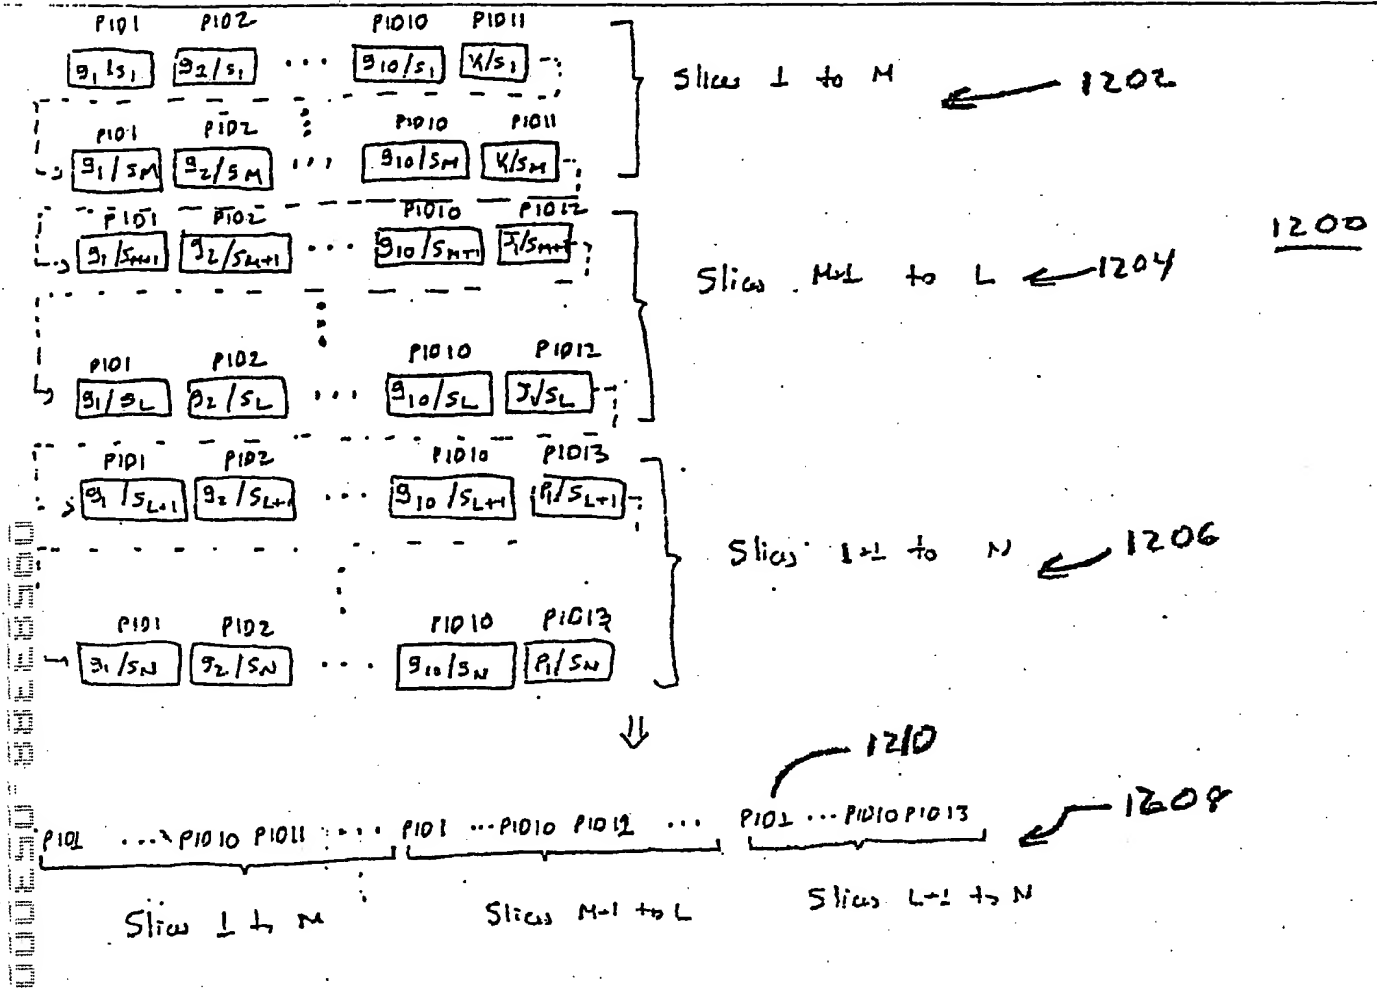 PID1 PID2 PID10 PID11
g1/s1 g2/s1 ... g10/s1 V1/s1
Slices 1 to M 1202
PID1 PID2 PID10 PID11
g1/sM g2/sM ... g10/sM V1/sM
PID1 PID2 PID10 PID12
g1/sM+1 g2/sM+1 ... g10/sM+1 J1/sM+1
1200
Slices M+1 to L 1204
PID1 PID2 PID10 PID12
g1/sL g2/sL ... g10/sL J1/sL
PID1 PID2 PID10 PID13
g1/sL+1 g2/sL+1 ... g10/sL+1 P1/sL+1
Slices L+1 to N 1206
PID1 PID2 PID10 PID13
g1/sN g2/sN ... g10/sN P1/sN
⇓
1210
1208
PID1 ... PID10 PID11 ... PID1 ... PID10 PID12 ... PID1 ... PID10 PID13
Slices 1 to M Slices M+1 to L Slices L+1 to N